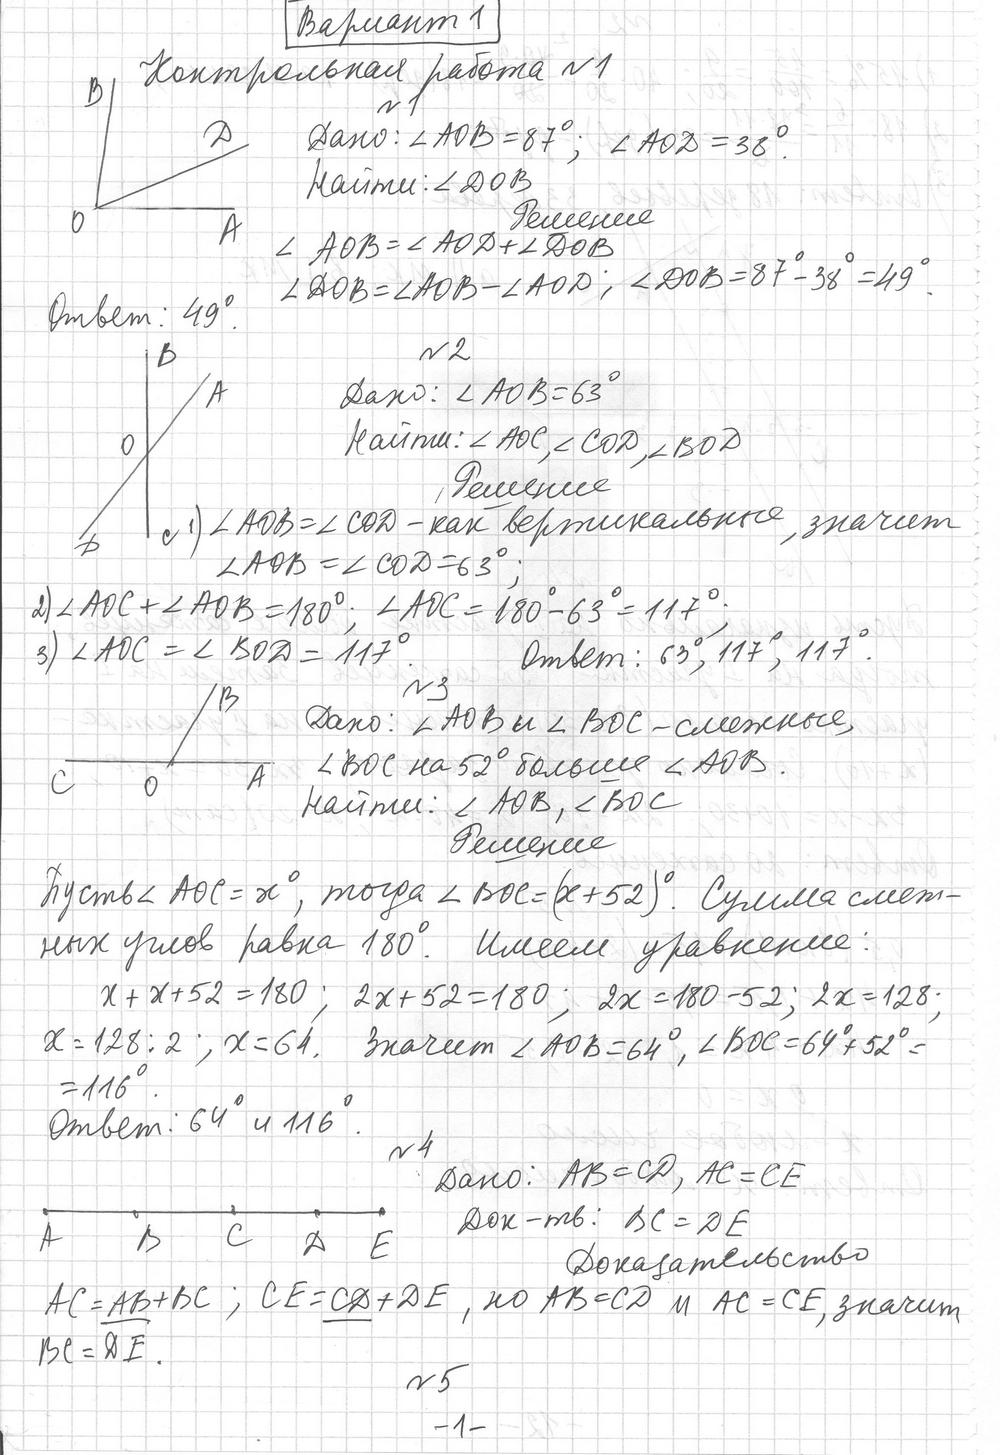 Вариант 1
Контрольная работа №1
№1
B
D
O
A
Дано: ∠AOB = 87°; ∠AOD = 38°.
Найти: ∠DOB
Решение
∠AOB = ∠AOD + ∠DOB
∠DOB = ∠AOB − ∠AOD; ∠DOB = 87° − 38° = 49°.
Ответ: 49°.
№2
B
A
O
D
C
Дано: ∠AOB = 63°
Найти: ∠AOC, ∠COD, ∠BOD
Решение
1) ∠AOB = ∠COD - как вертикальные, значит
∠AOB = ∠COD = 63°;
2) ∠AOC + ∠AOB = 180°; ∠AOC = 180° − 63° = 117°;
3) ∠AOC = ∠BOD = 117°. Ответ: 63°, 117°, 117°.
№3
B
C
O
A
Дано: ∠AOB и ∠BOC - смежные,
∠BOC на 52° больше ∠AOB.
Найти: ∠AOB, ∠BOC
Решение
Пусть ∠AOC = x°, тогда ∠BOC = (x+52)°. Сумма смеж-
ных углов равна 180°. Имеем уравнение:
x + x + 52 = 180; 2x + 52 = 180; 2x = 180 − 52; 2x = 128;
x = 128 : 2; x = 64. Значит ∠AOB = 64°, ∠BOC = 64° + 52° =
= 116°.
Ответ: 64° и 116°.
№4
A B C D E
Дано: AB = CD, AC = CE
Док-ть: BC = DE
Доказательство
AC = AB + BC; CE = CD + DE, но AB = CD и AC = CE, значит
BC = DE.
№5
-1-